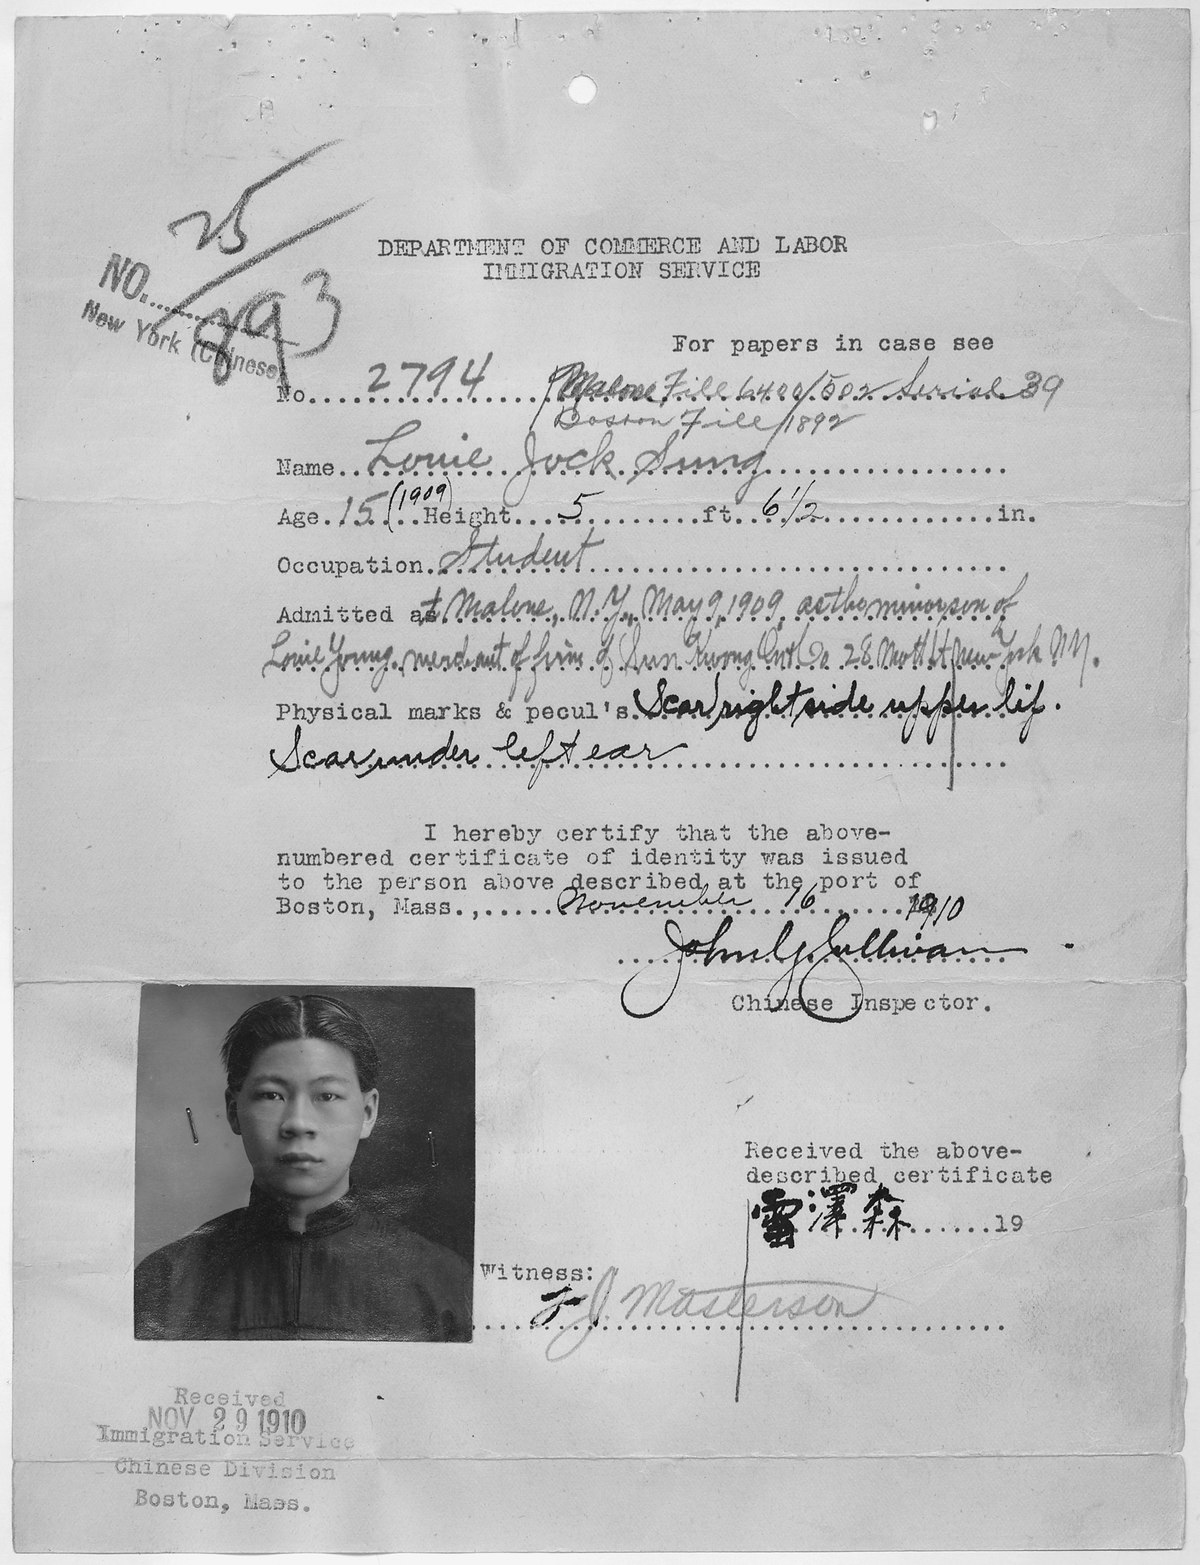 25/893
NO.
New York (Chinese)
DEPARTMENT OF COMMERCE AND LABOR
IMMIGRATION SERVICE
For papers in case see
No. 2794 Malone File 6400/502 Serial 39
Boston File 1892
Name Louie Jock Sung
Age 15 (1909) Height 5 ft 6 1/2 in.
Occupation. Student
Admitted at Malone, N.Y., May 9, 1909, as the minor son of
Louie Young, merchant of firm of Sun Kwong On & Co 28 Mott St New York N.Y.
Physical marks & pecul's. Scar right side upper lip.
Scar under left ear
I hereby certify that the above-
numbered certificate of identity was issued
to the person above described at the port of
Boston, Mass., November 16 1910
John G. Sullivan
Chinese Inspector.
Received the above-
described certificate
雷澤森 19
Witness:
J. Masterson
Received
NOV 29 1910
Immigration Service
Chinese Division
Boston, Mass.